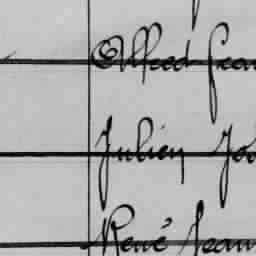 Alfred Jean
Julien Jos
René Jean